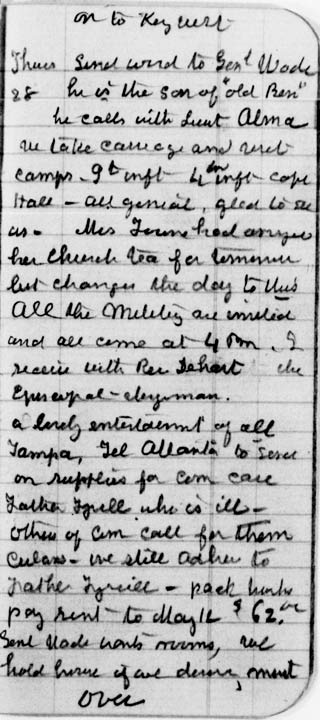 on to Key west
Thurs Send word to Genl Wade
28 he is the son of "old Ben"
he calls with Lieut Alma
we take carriage and visit
camps. 9th inft 4th inft Capt
Hall - all genial, glad to see
us - Mrs had arranged
her Church tea for tomorrow
but changes the day to this
All the Military are invited
and all come at 4 Pm. I
receive with Rev Dehart the
Episcopal - clergyman.
a lovely entertainment of all
Tampa, Tel Atlanta to send
on supplies for com care
Father Tyrill who is ill -
others of com call for them
Cubans - we still adhere to
Father Tyrill - pack trunks
pay rent to May 12 $62.00
Genl Wade wants rooms, we
hold house if we desire, must
over